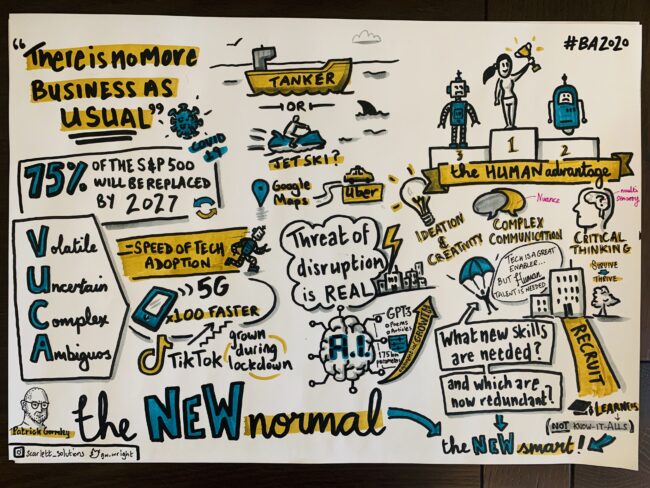 "There is no more
BUSINESS AS
USUAL"
COVID
19
75% OF THE S&P 500
WILL BE REPLACED
BY 2027
Volatile
Uncertain
Complex
Ambiguos
- SPEED OF TECH
ADOPTION
5G
x100 FASTER
TikTok
grown
during
lockdown
TANKER
- OR -
JET SKI?
Google
Maps
Uber
Threat of
disruption
is REAL
A.I.
GPT3
• Poems
• Articles
GROWTH
#BA2020
3
1
2
the HUMAN advantage
IDEATION
&
CREATIVITY
Nuance
COMPLEX
COMMUNICATION
multi
sensory
CRITICAL
THINKING
SURVIVE
THRIVE
TECH IS A GREAT
ENABLER...
BUT Human
TALENT IS NEEDED
What new skills
are needed?
and which are
now redundant?
RECRUIT
LEARNERS
(NOT KNOW-IT-ALLS)
the NEW smart!
the NEW normal
Patrick Gormley
scarlett_solutions